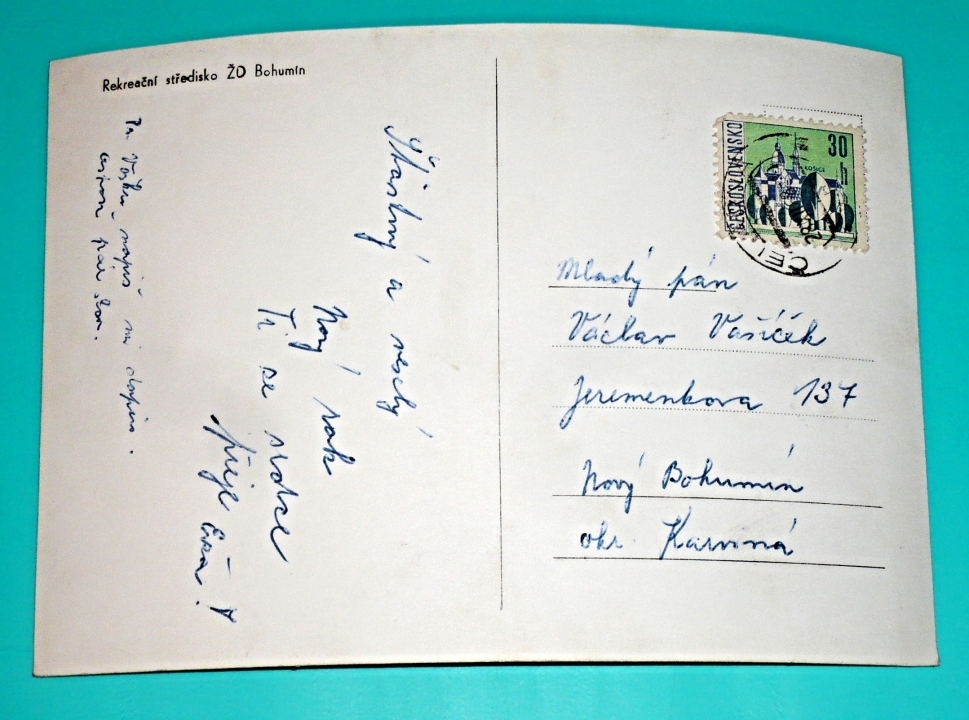 Rekreační středisko ŽD Bohumín
Šťastný a veselý
Nový rok
Ti ze srdce
přeje Eva!
Va napiš mi
aspoň pár slov.
ČESKOSLOVENSKO
30 h
KOŠICE
Mladý pán
Václav Vašíček
Jeremenkova 137
Nový Bohumín
okr. Karviná